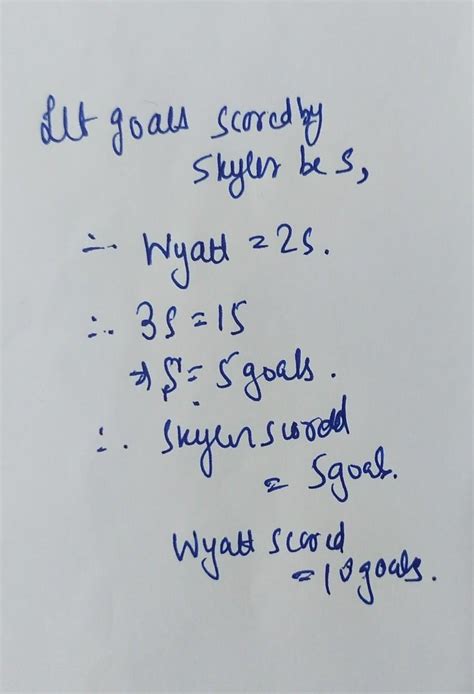 Let goals scored by
Skyler be S,
∴ Wyatt = 2S.
∴ 3S = 15
⇒ S = 5 goals.
∴ Skyler scored
= 5 goals.
Wyatt scored
= 10 goals.